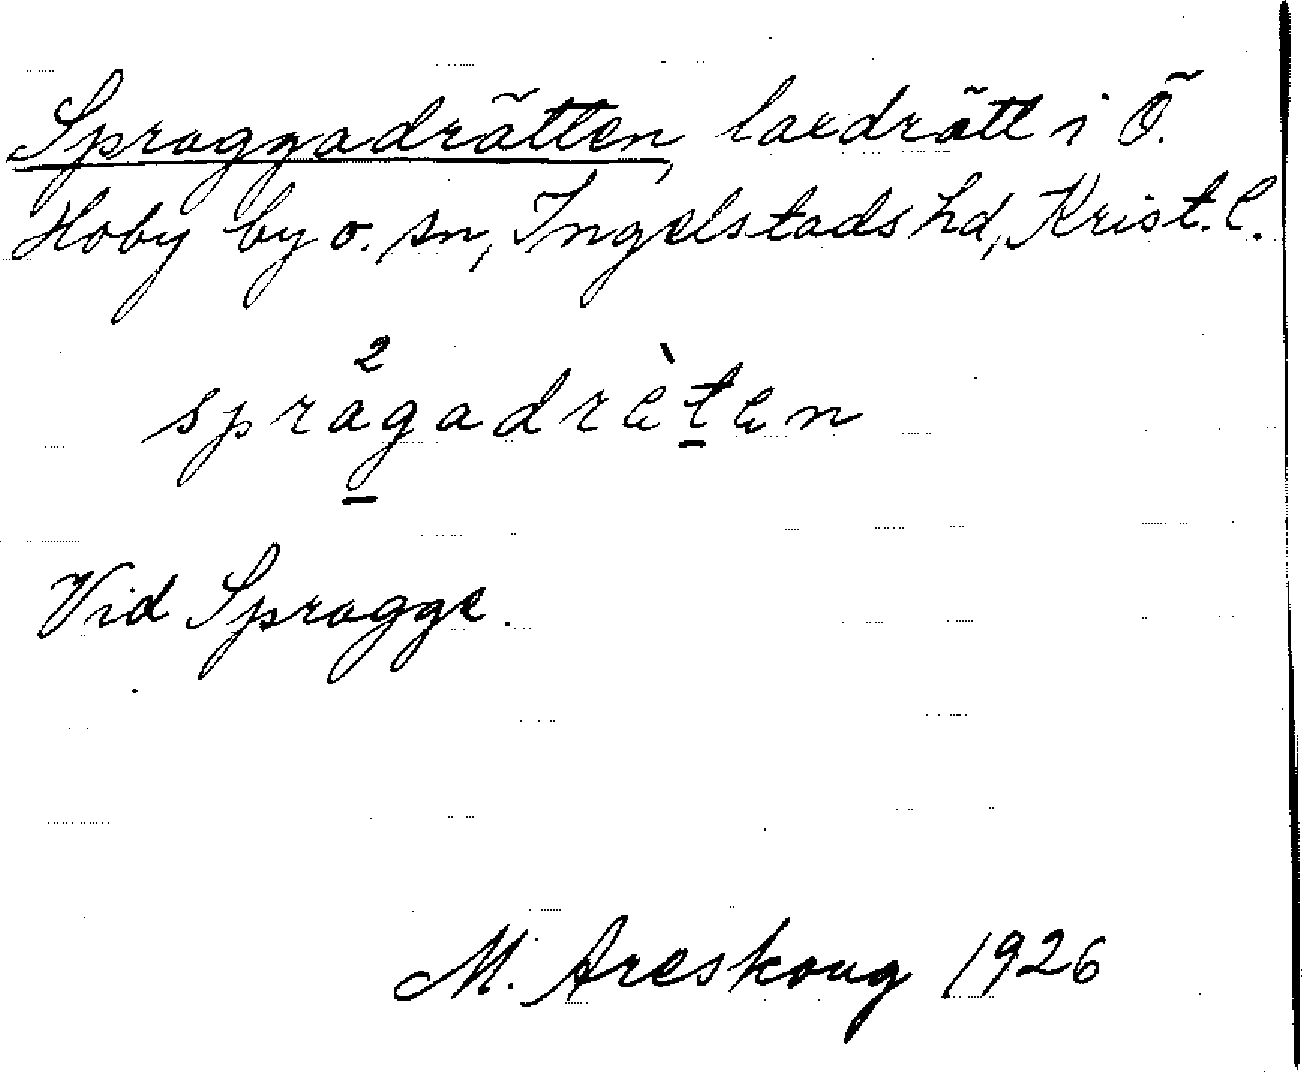 Spraggadrätten, laedrätt i Ö.
Hoby by o. sn, Ingelstads hd, Krist. l.
språ²gadrèten
Vid Spragge.
M. Areskoug 1926